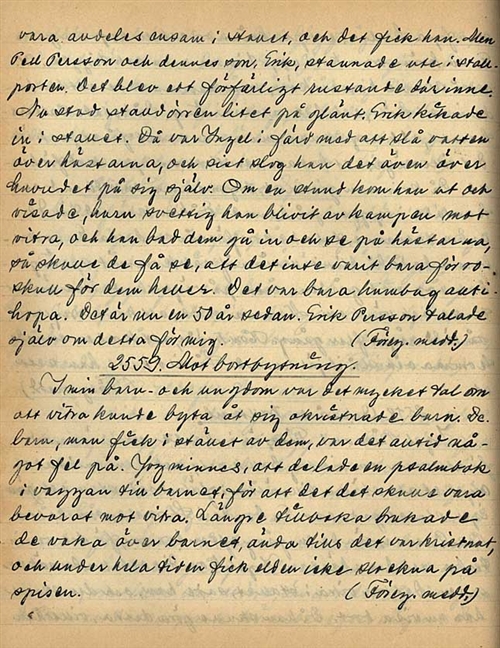 vara alldeles ensam i stallet, och det fick han. Men
Pell Persson och dennes son, Erik, stannade ute i stall-
porten. Det blev ett förfärligt rustande därinne.
Nu stod stalldörren litet på glänt. Erik kikade
in i stallet. Då var Ingel i färd med att slå vatten
över hästarna, och sist slog han det även över
huvudet på sig själv. Om en stund kom han ut och
visade, huru svettig han blivit av kampen mot
vitra, och han bad dem gå in och se på hästarna,
så skulle de få se, att det inte varit bara för ro-
skull för dem heller. Det var bara humbug allti-
hopa. Det är nu en 50 år sedan. Erik Persson talade
själv om detta för mig. (Föreg. medd.)
2559. Mot bortbytning.
I min barn- och ungdom var det mycket tal om
att vitra kunde byta åt sig okristnade barn. De
barn, man fick i stället av dem, var det alltid nå-
got fel på. Jag minnes, att de lade en psalmbok
i vaggan till barnet, för att det det skulle vara
bevarat mot vitra. Längre tillbaka brukade
de vaka över barnet, ända tills det var kristnat,
och under hela tiden fick elden icke slockna på
spisen. (Föreg. medd.)